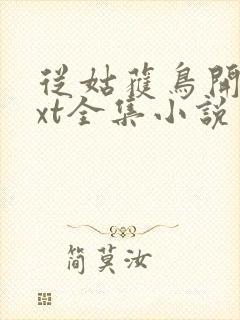 從姑獲鳥開
xt全集小說
簡莫汝